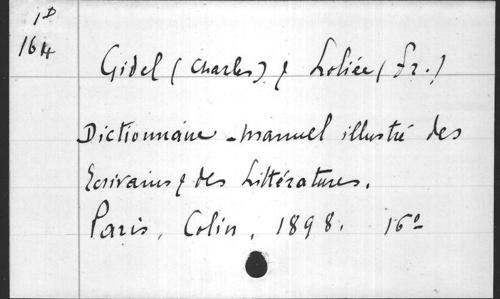 1D
164
Gidel (Charles) & Loliée (Fr.)
Dictionnaire-manuel illustré des
Ecrivains & des Littératures.
Paris, Colin, 1898. 16º